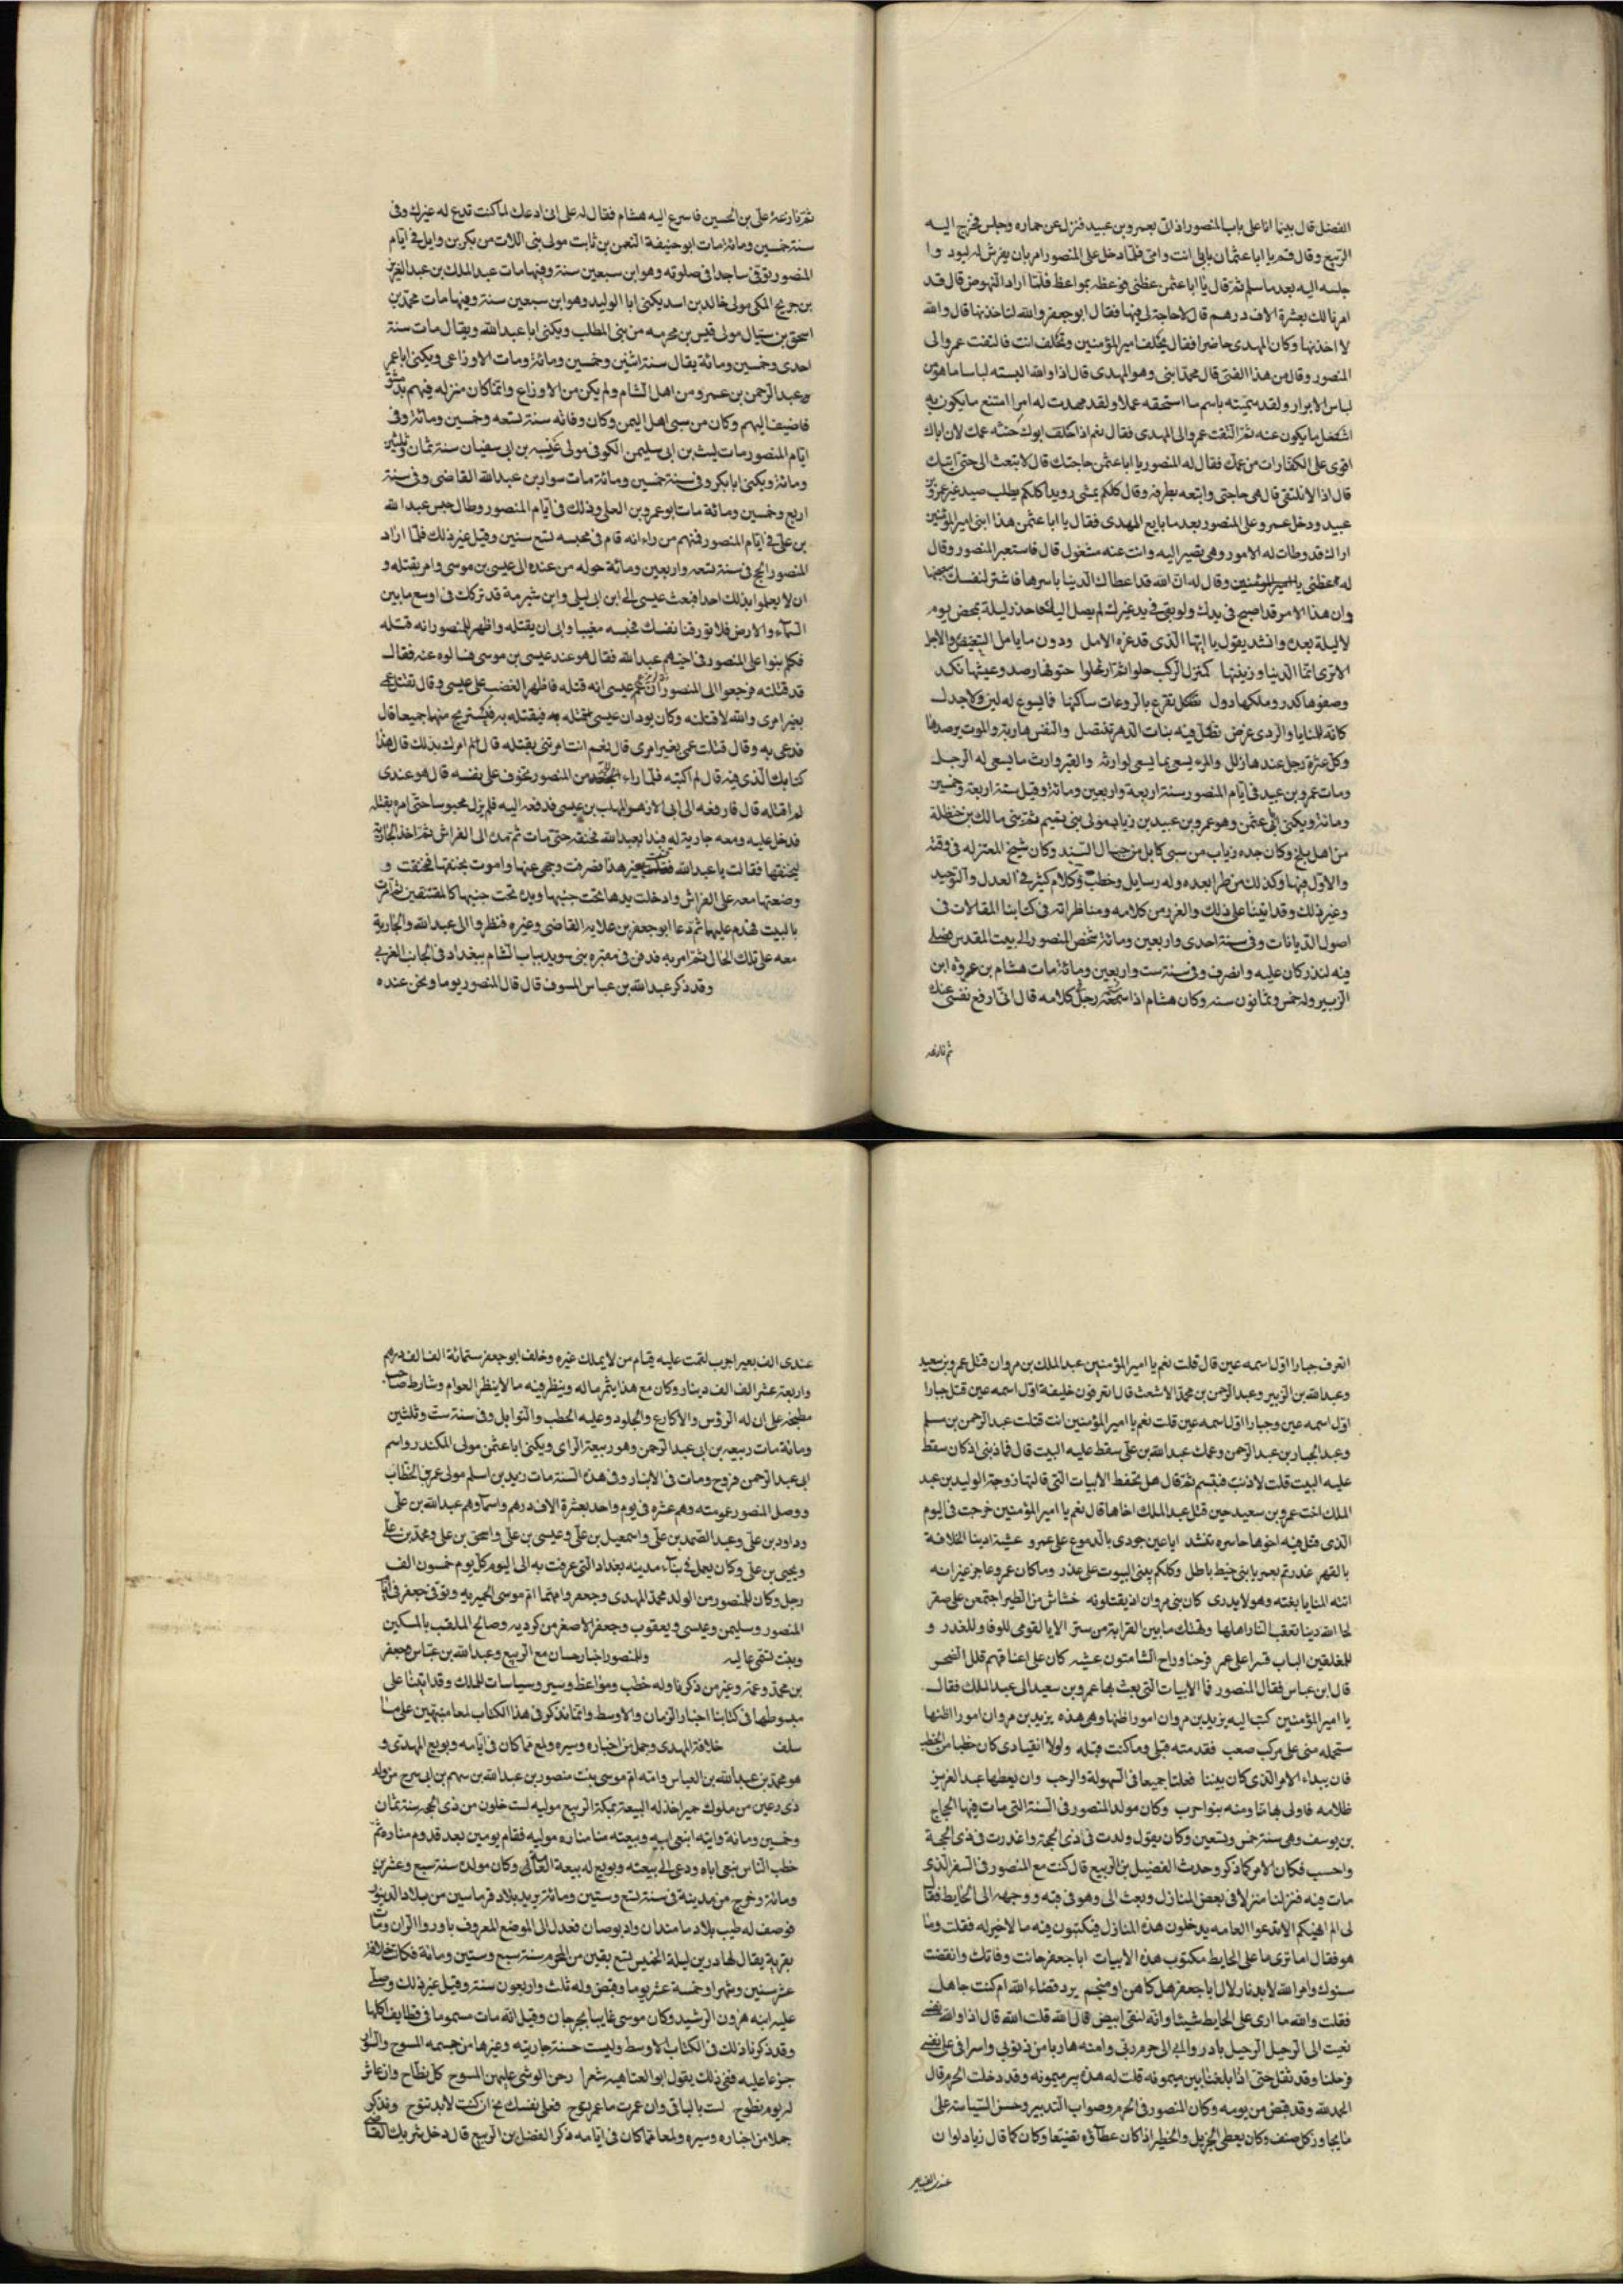 الفضل قال بينا انا على باب المنصور اذ اتى بعمرو بن عبيد فنزل عن حماره وجلس فخرج اليه
الربيع وقال قم يا ابا عثمان بابى انت وامى فلما دخل على المنصور امر بان يفرش له لبود وا
جلسه اليه بعد ما سلم ثم قال يا ابا عثمن عظنى فوعظه بمواعظ فلما اراد النهوض قال قد
امرنا لك بعشرة الاف درهم قال لا حاجة لى فيها فقال ابو جعفر والله لتاخذنها قال والله
لا اخذنها وكان المهدى حاضرا فقال يحلف امير المؤمنين وتحلف انت فالتفت عمرو الى
المنصور وقال من هذا الفتى قال محمد ابنى وهو المهدى قال اذا والله البسته لباسا ما هو من
لباس الابرار ولقد سميته باسم ما استحقه عملا ولقد مهدت له امرا امتنع ما يكون به
اشغل ما يكون عنه ثم التفت عمرو الى المهدى فقال نعم اذا حلف ابوك حنثه عمك لان اباك
اقوى على الكفارات من عمك فقال له المنصور يا ابا عثمن حاجتك قال لا تبعث الى حتى اتيك
قال اذا لا نلتقى قال هى حاجتى واتبعه بطرفه وقال كلكم يمشى رويد كلكم يطلب صيد غير عمرو بن
عبيد ودخل عمرو على المنصور بعد ما بايع المهدى فقال يا ابا عثمن هذا ابنى امير المؤمنين
اراك قد وطات له الامور وهى تصير اليه وانت عنه مشغول قال فاستعبر المنصور وقال
له عظنى وقال له ان الله قد اعطاك الدنيا باسرها فاشتر نفسك ببعضها
وان هذا الامر قد اصبح فى يدك ولو بقى فى يد غيرك لم يصل اليك فاحذر ليلة تمخض بيوم
لا ليلة بعده وانشد يقول يا ايها الذى قد غره الامل ودون ما يامل التنغيص والاجل
الا ترى انما الدنيا وزينتها كمنزل الركب حلوا ثم ارتحلوا حتوفها رصد وعيشها نكد
وصفوها كدر وملكها دول تظل تقرع بالروعات ساكنها فما يسوغ له لين ولا جدل
كانه للمنايا والردى غرض تظل فيه بنات الدهر تنتضل والنفس هاربة والموت يرصدها
وكل عثرة رجل عندها زلل والمرء يسعى بما يسعى لوارثه والقبر وارث ما يسعى له الرجل
ومات عمرو بن عبيد فى ايام المنصور سنة اربعة واربعين ومائة وقيل سنة اربعة وخمسين
ومائة ويكنى ابى عثمن وهو عمرو بن عبيد بن زياب مولى بنى تميم ثم بنى مالك بن حنظلة
من اهل بلخ وكان جده زياب من سبى كابل من جبال السند وكان شيخ المعتزله فى وقته
والاول فيها وكذلك من طرا بعده وله رسايل وخطب وكلام كثير فى العدل والتوحيد
وغير ذلك وقد اتينا على ذلك والغرر من كلامه ومناظراته فى كتابنا المقالات فى
اصول الديانات وفى سنة احدى واربعين ومائة شخص المنصور الى بيت المقدس فصلى
فيه لنذر كان عليه وانصرف وفى سنة ست واربعين ومائة مات هشام بن عروة ابن
الزبير وله خمس وثمانون سنه وكان هشام اذا اسمعه رجل كلامه قال انى ارفع نفسى عنك
ثم نازعه
ثم نازعه على بن الحسين فاسرع اليه هشام فقال له على انى ادعك لما كنت تدع له غيرك وفى
سنة خمسين ومائة مات ابو حنيفة النعمن بن ثابت مولى بنى اللات من بكر بن وايل فى ايام
المنصور توفى ساجدا فى صلوته وهو ابن سبعين سنة وفيها مات عبد الملك بن عبد العزيز
بن جريح المكى مولى خالد بن اسد يكنى ابا الوليد وهو ابن سبعين سنة وفيها مات محمد بن
اسحق بن سيال مولى قيس بن مخرمه من بنى المطلب ويكنى ابا عبد الله ويقال مات سنة
احدى وخمسين ومائة يقال سنة اثنين وخمسين ومائة ومات الاوزاعى ويكنى ابا عمر
وعبد الرحمن بن عمرو من اهل الشام ولم يكن من الاوزاع وانما كان منزله فيهم بدمشق
فاضيف اليهم وكان من سبى اهل اليمن وكان وفاته سنة تسعه وخمسين ومائة وفى
ايام المنصور مات ليث بن ابى سليمن الكوفى مولى عنبسه بن ابى سفيان سنة ثمان وثلثين
ومائة ويكنى ابا بكر وفى سنة خمسين ومائة مات سوار بن عبد الله القاضى وفى سنة
اربع وخمسين ومائة مات ابو عمرو بن العلى وذلك فى ايام المنصور وطال حبس عبد الله
بن على فى ايام المنصور فمنهم من راء انه قام فى محبسه تسع سنين وقيل غير ذلك فلما اراد
المنصور الحج فى سنة تسعه واربعين ومائة حوله من عنده الى عيسى بن موسى وامر بقتله و
ان لا يعلموا بذلك احدا فبعث عيسى الى ابن ابى ليلى وابن شبرمة قد تركك فى اوسع ما بين
السماء والارض فلا تورقنا نفسك محبسه مغيبا وابى ان يقتله واظهر للمنصور انه قتله
فكلم بنوا على المنصور فى اخيهم عبد الله فقال هو عند عيسى بن موسى فسالوه عنه فقال
قد قتلته فرجعوا الى المنصور ان زعم عيسى انه قتله فاظهر الغضب على عيسى وقال تقتل عمى
بغير امرى والله لاقتلنه وكان يود ان عيسى قتله فيقتله به فيستريح منها جميعا قال
فدعى به وقال قتلت عمى بغير امرى قال نعم انت امرتنى بقتله قال لم امرك بذلك قال هذا
كتابك الذى فيه قال لم اكتبه فلما راء الجد من المنصور تخوف على نفسه قال هو عندى
لم اقتله قال فارفعه الى ابى الازهر المهلب بن عيسى فدفعه اليه فلم يزل محبوسا حتى امره بقتله
فدخل عليه ومعه جارية له فبدا بعبد الله فخنقه حتى مات ثم مده الى الفراش ثم اخذ الجارية
ليخنقها فقالت يا عبد الله قتلة بغير هذا فصرفت وجهى عنها واموت بخنقها فخنقت و
وضعتها معه على الفراش وادخلت يدها تحت جنبها ويده تحت جنبها كالمعتنقين ثم امرت
بالبيت فهدم عليهما ثم دعا ابو جعفر بن علاية القاضى وغيره فنظروا الى عبد الله والجارية
معه على تلك الحال ثم امر به فدفن فى مقبره بنى سويد بباب الشام ببغداد فى الجانب الغربى
وقد ذكر عبد الله بن عباس المسوف قال قال المنصور يوما ونحن عنده
اتعرف جبارا اول اسمه عين قال قلت نعم يا امير المؤمنين عبد الملك بن مروان قتل عمرو بن سعيد
وعبد الله بن الزبير وعبد الرحمن بن محمد الاشعث قال اتعرفون خليفة اول اسمه عين قتل جبارا
اول اسمه عين وجبارا اول اسمه عين قلت نعم يا امير المؤمنين انت قتلت عبد الرحمن بن مسلم
وعبد الجبار بن عبد الرحمن وعمك عبد الله بن على سقط عليه البيت قال فما ذنبى اذ كان سقط
عليه البيت قلت لا ذنب فتبسم ثم قال هل تحفظ الابيات التى قالتها زوجة الوليد بن عبد
الملك اخت عمرو بن سعيد حين قتل عبد الملك اخاها قال نعم يا امير المؤمنين خرجت فى اليوم
الذى قتل فيه اخوها حاسره تنشد ايا عين جودى بالدموع على عمرو عشية ادينا الخلافة
بالقهر غدرتم بعمر يا بنى خيط باطل وكلكم يبنى البيوت على غدر وما كان عمرو عاجز غير انه
اتته المنايا بغته وهو لا يدرى كان بنى مروان اذ يقتلونه خشاش من الطير اجتمعن على صقر
لحا الله دنيا تعقب النار اهلها وتهتك ما بين القرابة من ستر الا يا لقومى للوفا وللغدر و
للمغلقين الباب قسرا على عمر فرحنا وراح الشامتون عشيه كان على اعناقهم قلل الصخر
قال ابن عباس فقال المنصور فما الابيات التى بعث بها عمرو بن سعيد الى عبد الملك فقال
يا امير المؤمنين كتب اليه يزيد بن مروان امورا ظنها وهى هذه يزيد بن مروان امورا اظنها
ستحمله منى على مركب صعب فقدمته قبلى وما كنت قبله ولولا انقيادى كان خطبا من الخطب
فان يبداء الامر الذى كان بيننا فعلنا جميعا فى السهولة والرحب وان يعطها عبد العزيز
ظلامه فاولى بها منا ومنه بنو احرب وكان مولد المنصور فى السنة التى مات فيها الحجاج
بن يوسف وهى سنة خمس وتسعين وكان يقول ولدت فى ذى الحجة واعذرت فى ذى الحجة
واحسب فكان الامر كما ذكر وحدث الفضيل بن الربيع قال كنت مع المنصور فى السفر الذى
مات فيه فنزلنا منزلا فى بعض المنازل وبعث الى وهو فى قبه ووجهه الى الحايط فقا
لى الم انهيكم الا تدعوا العامه يدخلون هذه المنازل فيكتبون فيه ما لا خير له فقلت وما
هو فقال اما ترى ما على الحايط مكتوب هذه الابيات ابا جعفر حانت وفاتك وانقضت
سنوك وامر الله لا بد نازلا لايا جعفر هل كاهن او منجم يرد قضاء الله ام كنت جاهل
فقلت والله ما ارى على الحايط شيئا وانه لنقى ابيض قال الله قلت الله قال اذا والله نفسى
نعيت الى الرحيل الرحيل بادر والبى الى حرم ربى وامنه هاربا من ذنوبى واسرافى على نفسى
فرحلنا وقد ثقل حتى اذا بلغنا بين ميمونه قلت له هذه بير ميمونه وقد دخلت الحرم قال
الحمد لله وقد قبض من يومه وكان المنصور فى الحزم وصواب التدبير وحسن السياسة على
ما يجاوز كل صنف وكان يعطى الجزيل والخطير اذا كان عطاؤه تضيعا وكان كما قال زياد لو ا ن
عندى الف بعير
عندى الف بعير اجوب لقمت عليه قيام من لا يملك غيره وخلف ابو جعفر ستمائة الف الف درهم
واربعة عشر الف الف دينار وكان مع هذا يثمر ماله وينظر فيه ما لا ينظر العوام وشارط صاحب
مطبخه على ان له الروس والاكارع والجلود وعليه الحطب والتوابل وفى سنة ست وثلثين
ومائة مات ربيعه بن ابى عبد الرحمن وهو ربيعة الراى ويكنى ابا عثمن مولى المكندر واسم
ابى عبد الرحمن فروخ ومات فى الانبار وفى هذه السنة مات زيد بن اسلم مولى عمر بن الخطاب
ووصل المنصور عمومته وهم عشره فى يوم واحد بعشرة الاف درهم واسماؤهم عبد الله بن على
وداود بن على وعبد الصمد بن على واسمعيل بن على وعيسى بن على واسحق بن على ومحمد بن على
ويحيى بن على وكان يعمل فى بناء مدينه بغداد التى عرفت به الى اليوم كل يوم خمسون الف
رجل وكان للمنصور من الولد محمد المهدى وجعفر وامهما ام موسى الحميريه وتوفى جعفر فى ايام
المنصور وسليمن وعيسى ويعقوب وجعفر الاصغر من كرديه وصالح الملقب بالمسكين
وبنت تسمى عاليه وللمنصور اخبار حسان مع الربيع وعبد الله بن عباس وجعفر
بن محمد وعمه وغير من ذكرنا وله خطب ومواعظ وسير وسياسات للملك وقد اتينا على
مبسوطها فى كتابنا اخبار الزمان والاوسط وانما نذكر فى هذا الكتاب لمعا منبهين على ما
سلف خلافة المهدى وجمل من اخباره وسيره ولمع مما كان فى ايامه وبويع المهدى و
هو محمد بن عبد الله بن العباس وامه ام موسى بنت منصور بن عبد الله بن سهم بن ابى سرح من ولد
ذى رعين من ملوك حمير اخذ له البيعة بمكة الربيع موليه لست خلون من ذى الحجه سنة ثمان
وخمسين ومائة واتيه ابنعى ابيه وبيعته منا مناره موليه فقام يومين بعد قدوم مناره ثم
خطب الناس بنعى اباه ودعى الى بيعته وبويع له بيعة العامه وكان مولده سنة سبع وعشرين
ومائة وخرج من مدينة فى سنة تسع وستين ومائة يريد بلاد قرماسين من بلاد الدينور
فوصف له طيب بلاد ماسندان واد بوصان فعدل الى الموضع المعروف باورو الران ومات
بقرية يقال لها درين ليلة الخميس لسبع بقين من المحرم سنة سبع وستين ومائة فكانت خلافته
عشر سنين وشهر او خمسة عشر يوما وقبض وله ثلث واربعون سنة وقيل غير ذلك وصلى
عليه ابنه هرون الرشيد وكان موسى غايبا بجرجان وقيل انه مات مسموما فى قطايف اكلها
وقد ذكرنا ذلك فى الكتاب الاوسط ولبست حسنة جاريته وغيرها من حسمه المسوح والسواد
جزعا عليه ففى ذلك يقول ابو العتاهيه شعرا رحن الوشى عليهن المسوح كل نطاح وان عاش
له يوم نطوح لست بالباقى وان عمرت ما عمر نوح فعلى نفسك نح ان كنت لا بد تنوح ونذكر
جملا من اخباره وسيره ولمعا مما كان فى ايامه ذكر الفضل بن الربيع قال دخل شريك القاضى